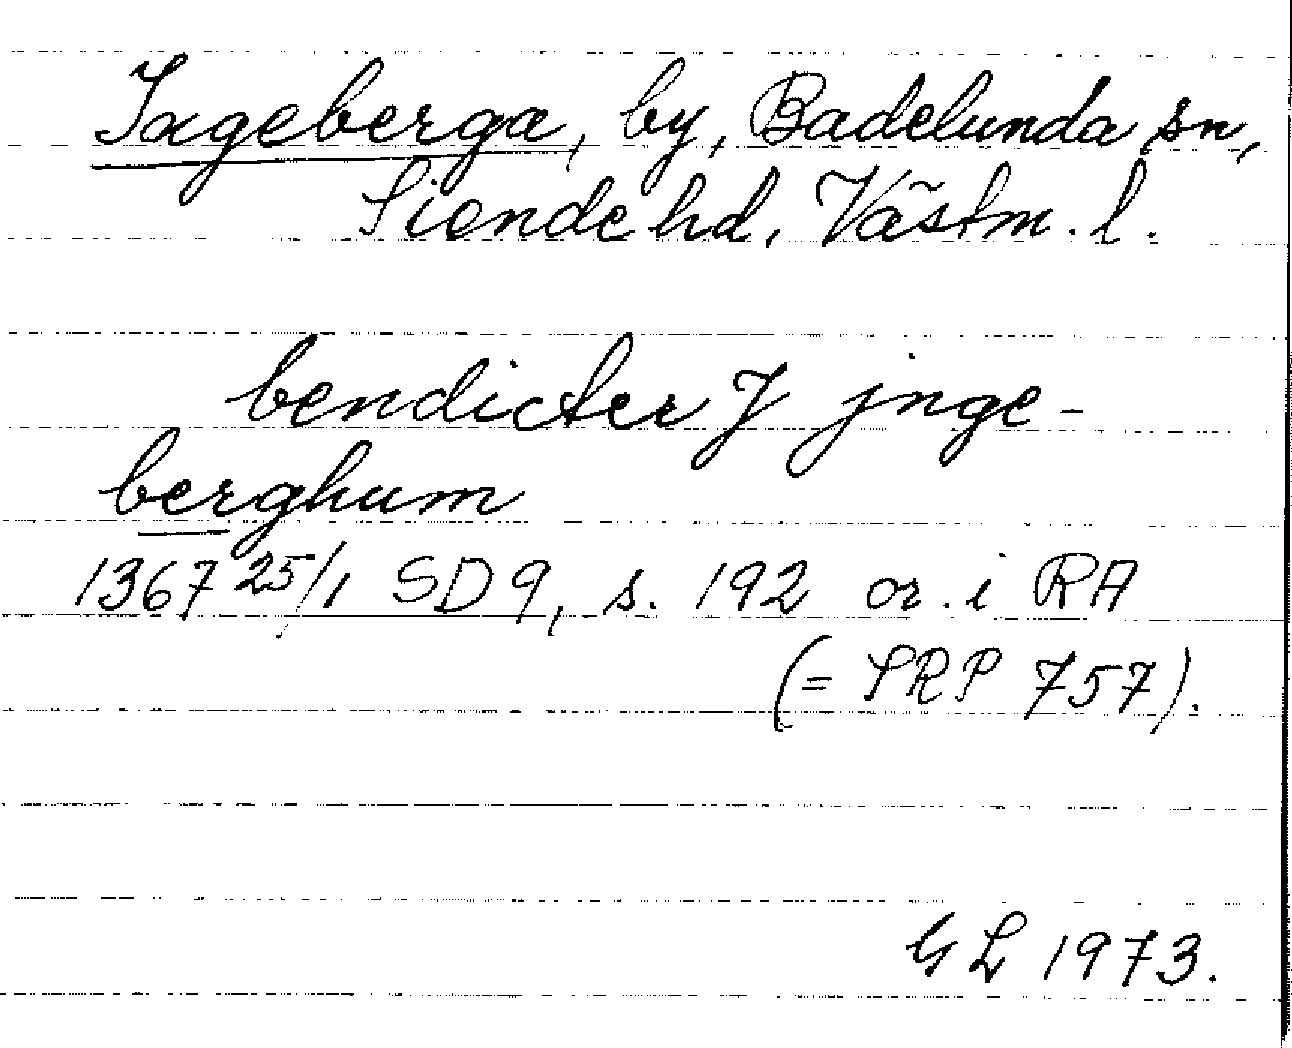 Ingeberga, by, Badelunda sn,
Siende hd, Västm. l.
bendicter J jnge-
berghum
1367 25/1 SD 9, s. 192 or. i RA
(= SRP 757).
GL 1973.